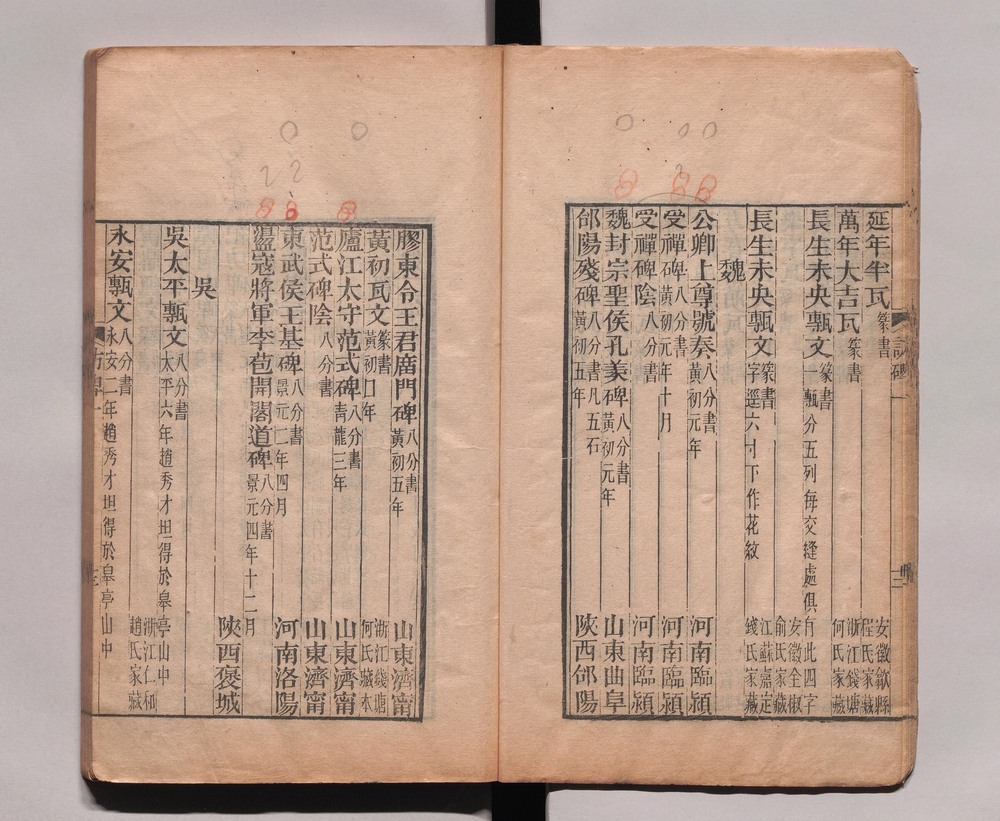 延年半瓦 篆書 安徽歙縣 程氏家藏
萬年大吉瓦 篆書 浙江錢塘 何氏家藏
長生未央甎文 篆書 一甎分五列每交縫處俱有此四字 安徽全椒 俞氏家藏
長生未央甎文 篆書 字逕六寸下作花紋 江蘇嘉定 錢氏家藏
魏
公卿上尊號奏 八分書 黃初元年 河南臨潁
受禪碑 八分書 黃初元年十月 河南臨潁
受禪碑陰 八分書 河南臨潁
魏封宗聖侯孔羨碑 八分書 黃初元年 山東曲阜
郃陽殘碑 八分書凡五石 黃初五年 陝西郃陽
膠東令王君廟門碑 八分書 黃初五年 山東濟甯
黃初瓦文 篆書 黃初口年 浙江錢塘 何氏藏本
廬江太守范式碑 八分書 青龍三年 山東濟甯
范式碑陰 八分書 山東濟甯
東武侯王基碑 八分書 景元二年四月 河南洛陽
盪寇將軍李苞開閣道碑 八分書 景元四年十二月 陝西褒城
吳
吳太平甎文 八分書 太平六年趙秀才坦得於皋亭山中 浙江仁和 趙氏家藏
永安甎文 八分書 永安二年趙秀才坦得於皋亭山中